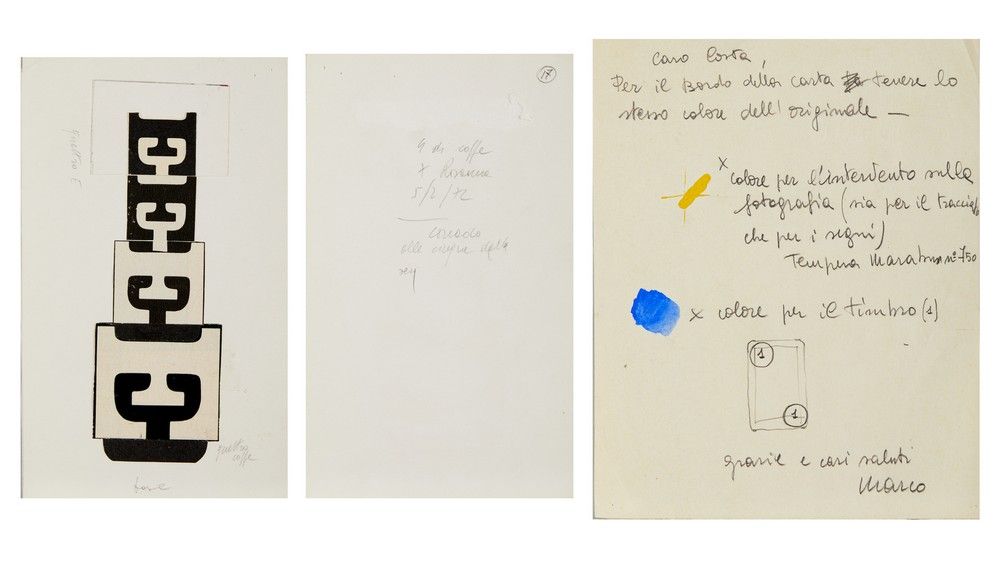 quattro E
quattro
coffe
17
4 di coffe
X Rosanna
5/2/72
corrado
alle
Caro Costa,
Per il Bordo della carta tenere lo
stesso colore dell'originale —
x colore per l'intervento sulla
fotografia (sia per il tracciato
che per i segni)
Tempera Marabu nº 750
x colore per il timbro (1)
1
1
grazie e cari saluti
Marco